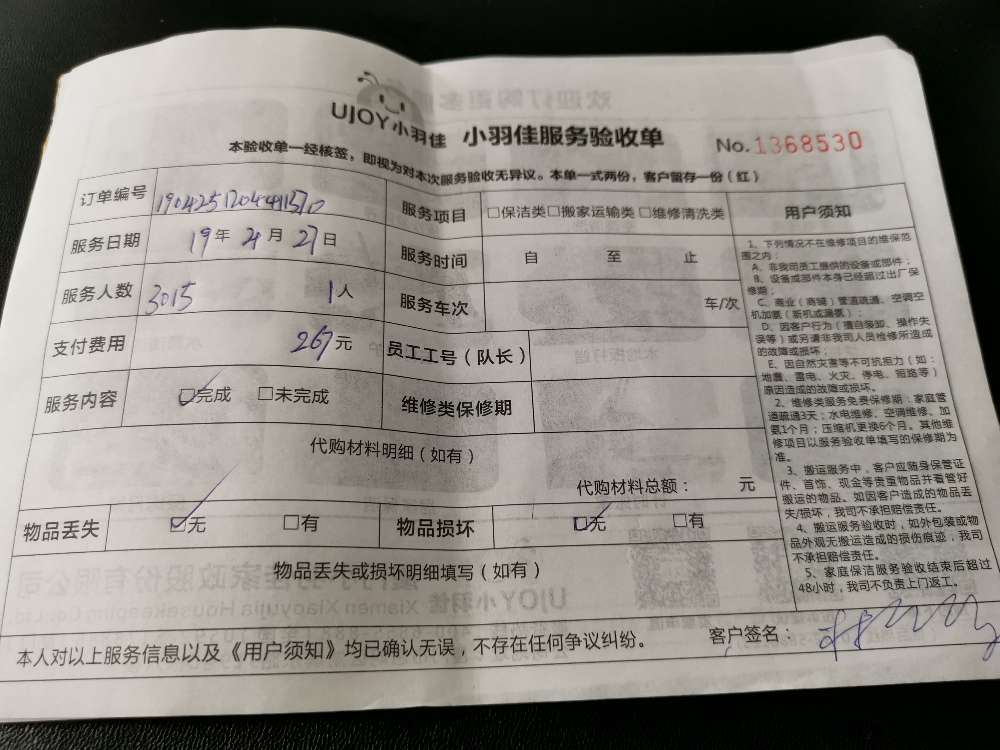 UJOY小羽佳 小羽佳服务验收单 No.1368530
本验收单一经核签，即视为对本次服务验收无异议。本单一式两份，客户留存一份（红）
订单编号 服务项目 □保洁类□搬家运输类□维修清洗类
服务日期 19年4月27日 服务时间 自 至 止
服务人数 3015 1人 服务车次 车/次
支付费用 267元 员工工号（队长）
服务内容 □完成 □未完成 维修类保修期
代购材料明细（如有）
代购材料总额： 元
物品丢失 □无 □有 物品损坏 □无 □有
物品丢失或损坏明细填写（如有）
用户须知
1、下列情况不在维修项目的维保范
围之内：
A、非我司员工提供的设备或部件；
B、设备或部件本身已经超过出厂保
修期；
C、商业（商铺）管道疏通、空调空
机加氨（新机或漏氨）；
D、因客户行为（擅自装卸、操作失
误等）或另请非我司人员检修所造成
的故障或损坏；
E、因自然灾害等不可抗拒力（如：
地震、雷电、火灾、停电、短路等）
原因造成的故障或损坏。
2、维修类服务免费保修期：家庭管
道疏通3天；水电维修、空调维修、加
氨1个月；压缩机更换6个月。其他维
修项目以服务验收单填写的保修期为
准。
3、搬运服务中，客户应随身保管证
件、首饰、现金等贵重物品并看管好
搬运的物品。如因客户造成的物品丢
失/损坏，我司不承担赔偿责任。
4、搬运服务验收时，如外包装或物
品外观无搬运造成的损伤痕迹，我司
不承担赔偿责任。
5、家庭保洁服务验收结束后超过
48小时，我司不负责上门返工。
本人对以上服务信息以及《用户须知》均已确认无误，不存在任何争议纠纷。 客户签名：